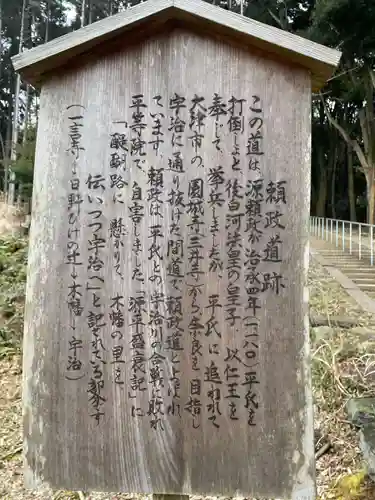 頼政道跡
この道は、源頼政が治承四年(一一八〇)平氏を
打倒しようと、後白河天皇の皇子、以仁王を
奉じて、挙兵しましたが、平氏に追われて
大津市の、園城寺(三井寺)から、奈良を目指し
宇治に通り抜けた間道で頼政道とよばれ
ています。頼政は、平氏との宇治川の合戦に敗れ
平等院で、自害しました。「源平盛衰記」に
「醍醐路に懸かりて、木幡の里を
伝いつつ宇治へ」と記されている部分です
(一言寺–日野ひけの辻–木幡–宇治)